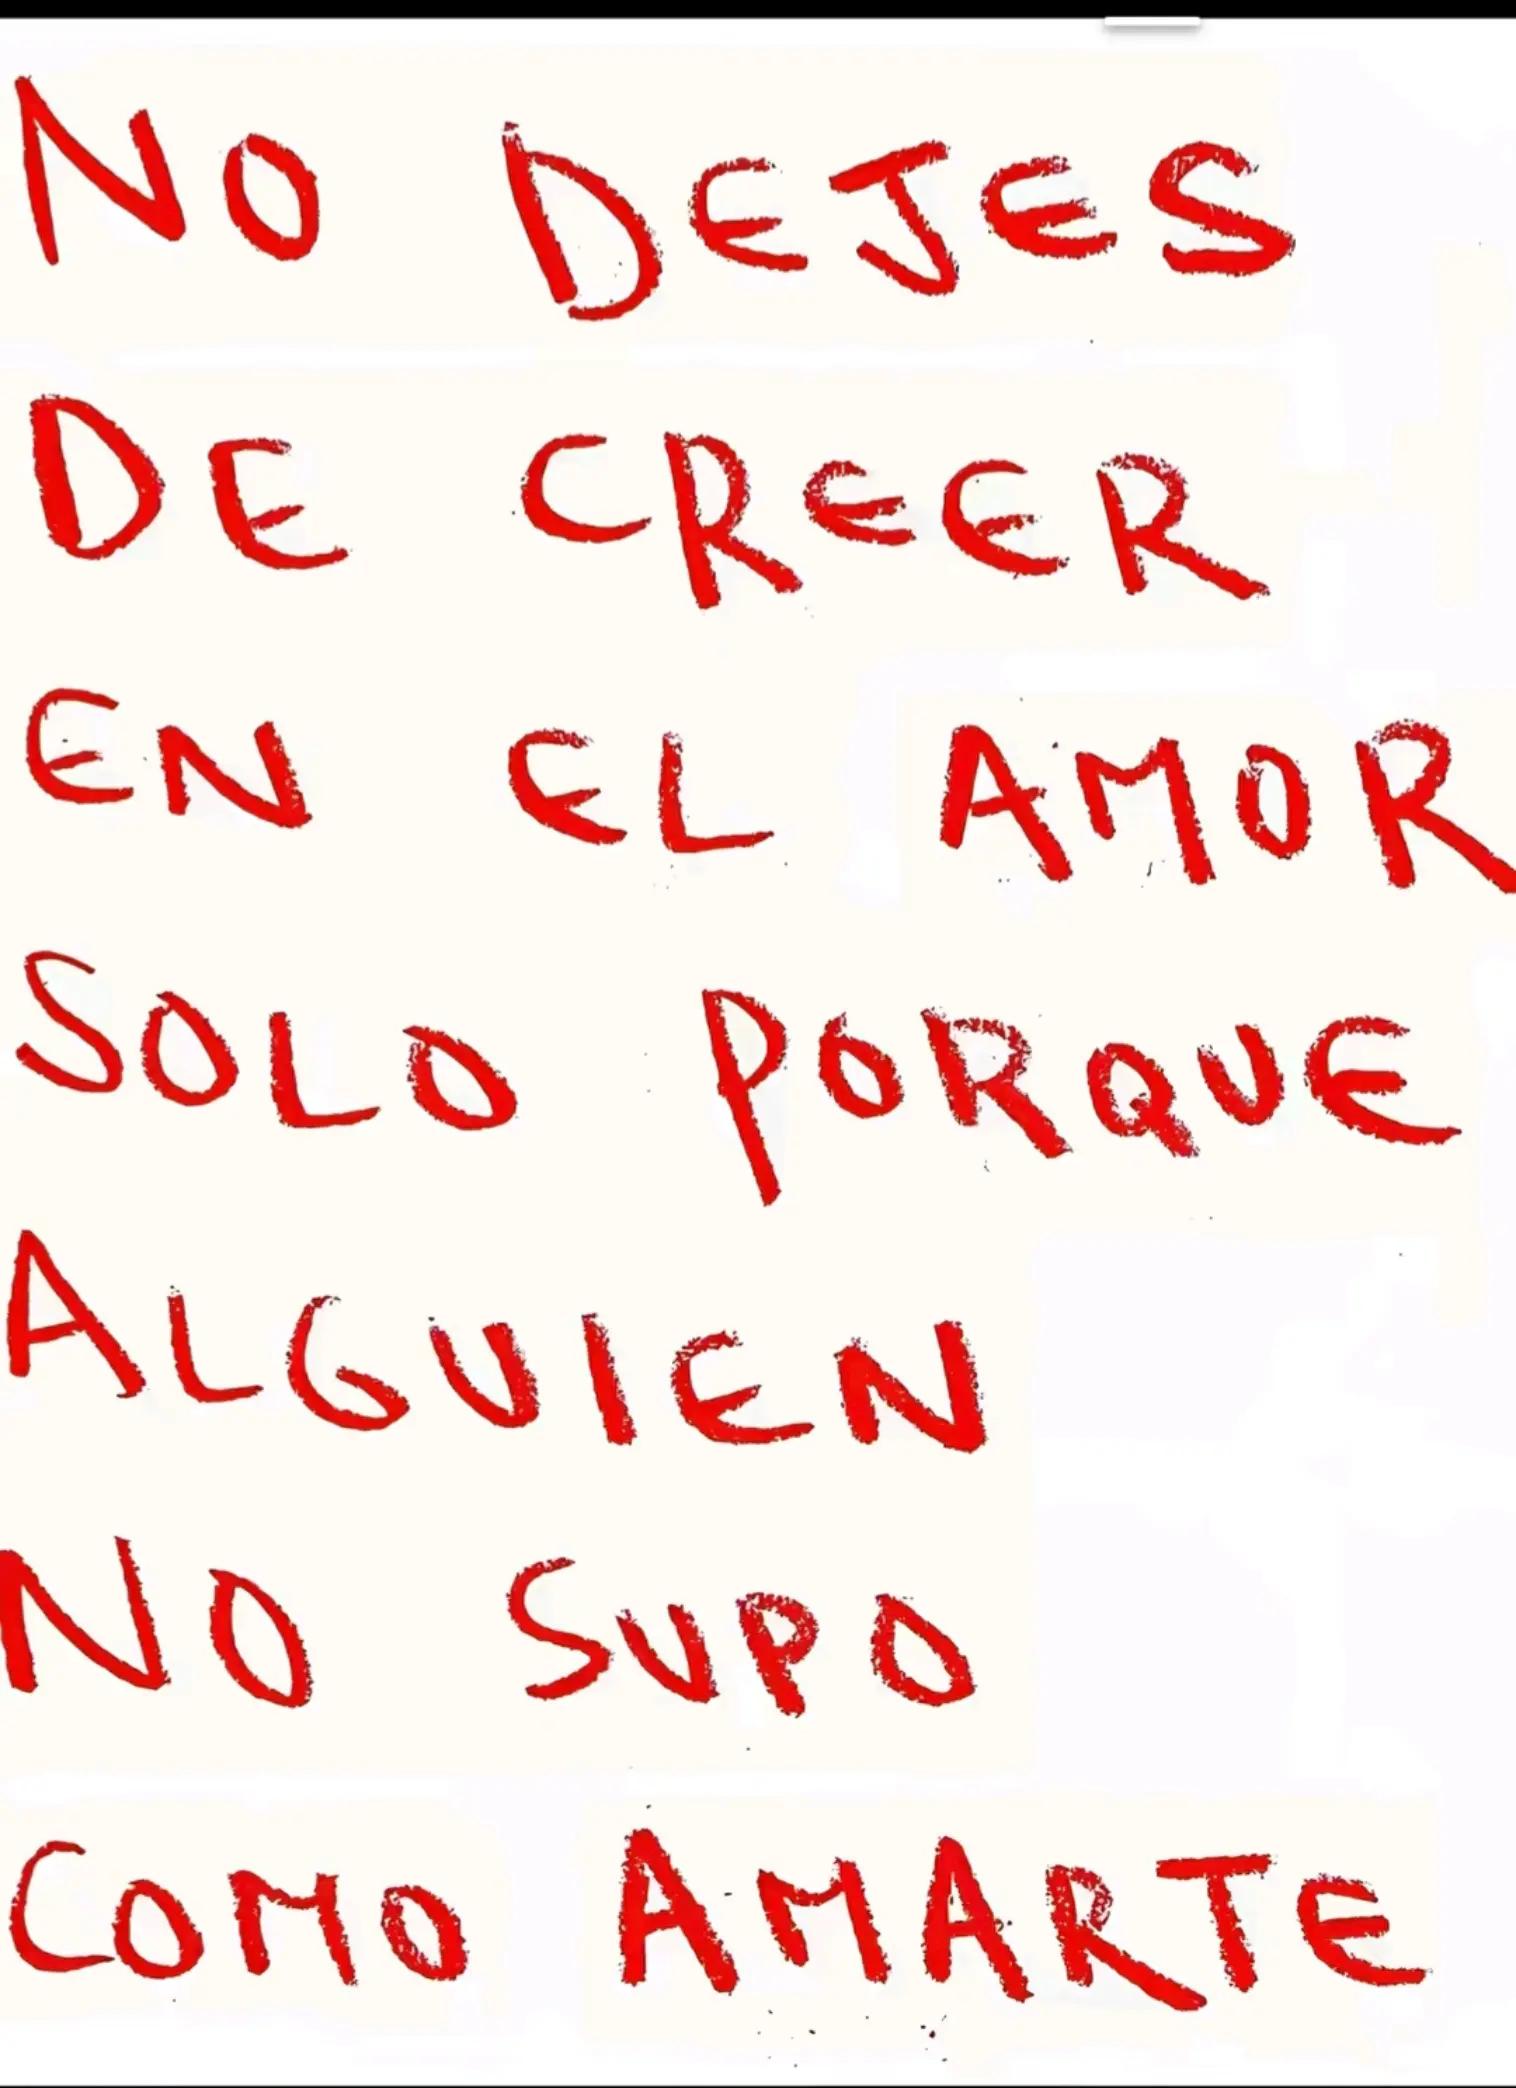 NO DEJES
DE CREER
EN EL AMOR
SOLO PORQUE
ALGUIEN
NO SUPO
COMO AMARTE